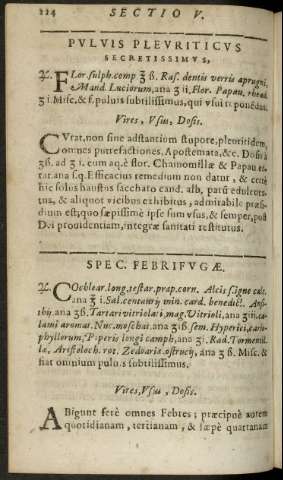 224 SECTIO V.
PVLVIS PLEVRITICVS
SECRETISSIMVS,
℞. FLor. sulph. comp ʒ ß. Ras. dentis verris aprugni,
Mand. Luciorum, ana ʒ ii. Flor. Papau. rhead.
ʒ i. Misc. & f. puluis subtilissimus, qui vsui reponatur.
Vires, Vsus, Dosis.
CVrat, non sine adstantium stupore, pleuritidem,
omnes putrefactiones, Apostemata, &c. Dosis à
ʒß. ad ʒ i. cum aq. è flor. Chamomillæ & Papau er-
rat. ana s.q. Efficacius remedium non datur, & certè
hic solus haustus saccharo cand. alb. parũ edulcora-
tus, & aliquot vicibus exhibitus, admirabile præsi-
dium est; quo sæpissimè ipse sum vsus, & semper, post
Dei prouidentiam, integræ sanitati restitutus.
SPEC. FEBRIFVGÆ.
℞. COchlear. long. testar. præp. corn. Alcis signo
ana ʒ i. Sal. centaurij min. card. benedict. Abs-
thij, ana ʒß. Tartari vitriolati, mag. Vitrioli, ana ʒ iii. ca-
lami aromat. Nuc. moschat. ana ʒ iß. sem. Hyperici, cario-
phyllorum, Piperis longi camph. ana ʒ i. Rad. Tormentil-
læ, Aristoloch. rot. Zedoariæ, ostrutij, ana ʒ ß. Misc. &
fiat omnium puluis subtilissimus.
Vires, Vsus, Dosis.
ABigunt ferè omnes Febres; præcipuè autem
quotidianam, tertianam, & sæpè quartanam